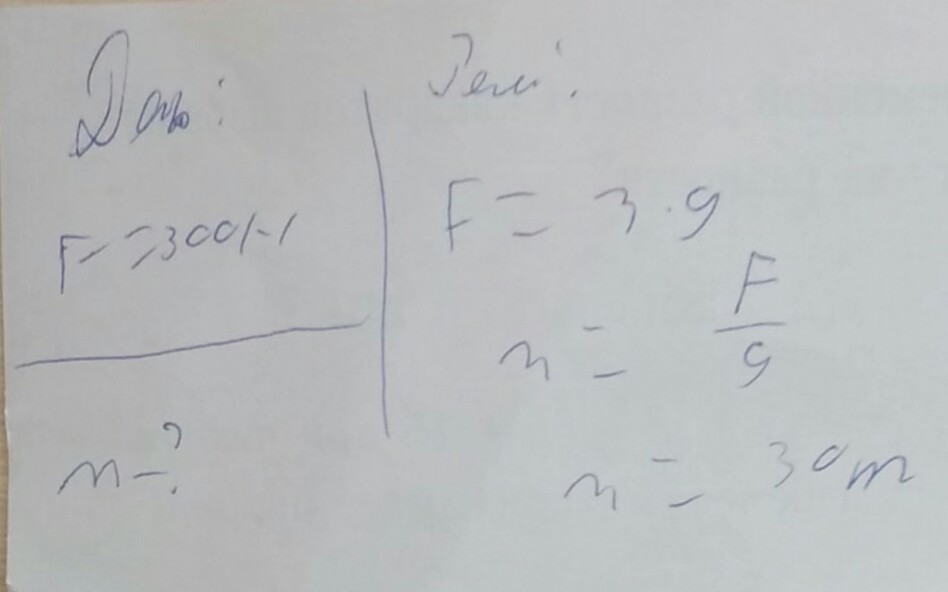 Дано:
F = 300 Н
m - ?
Реш:
F = 3 · g
m = F / g
m = 30 m